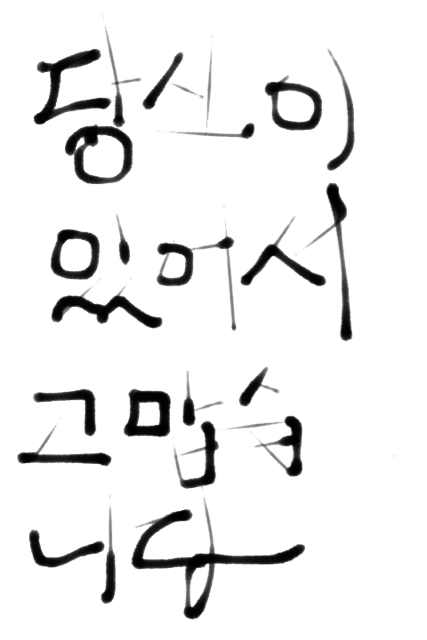 당신이
있어서
고맙습
니다